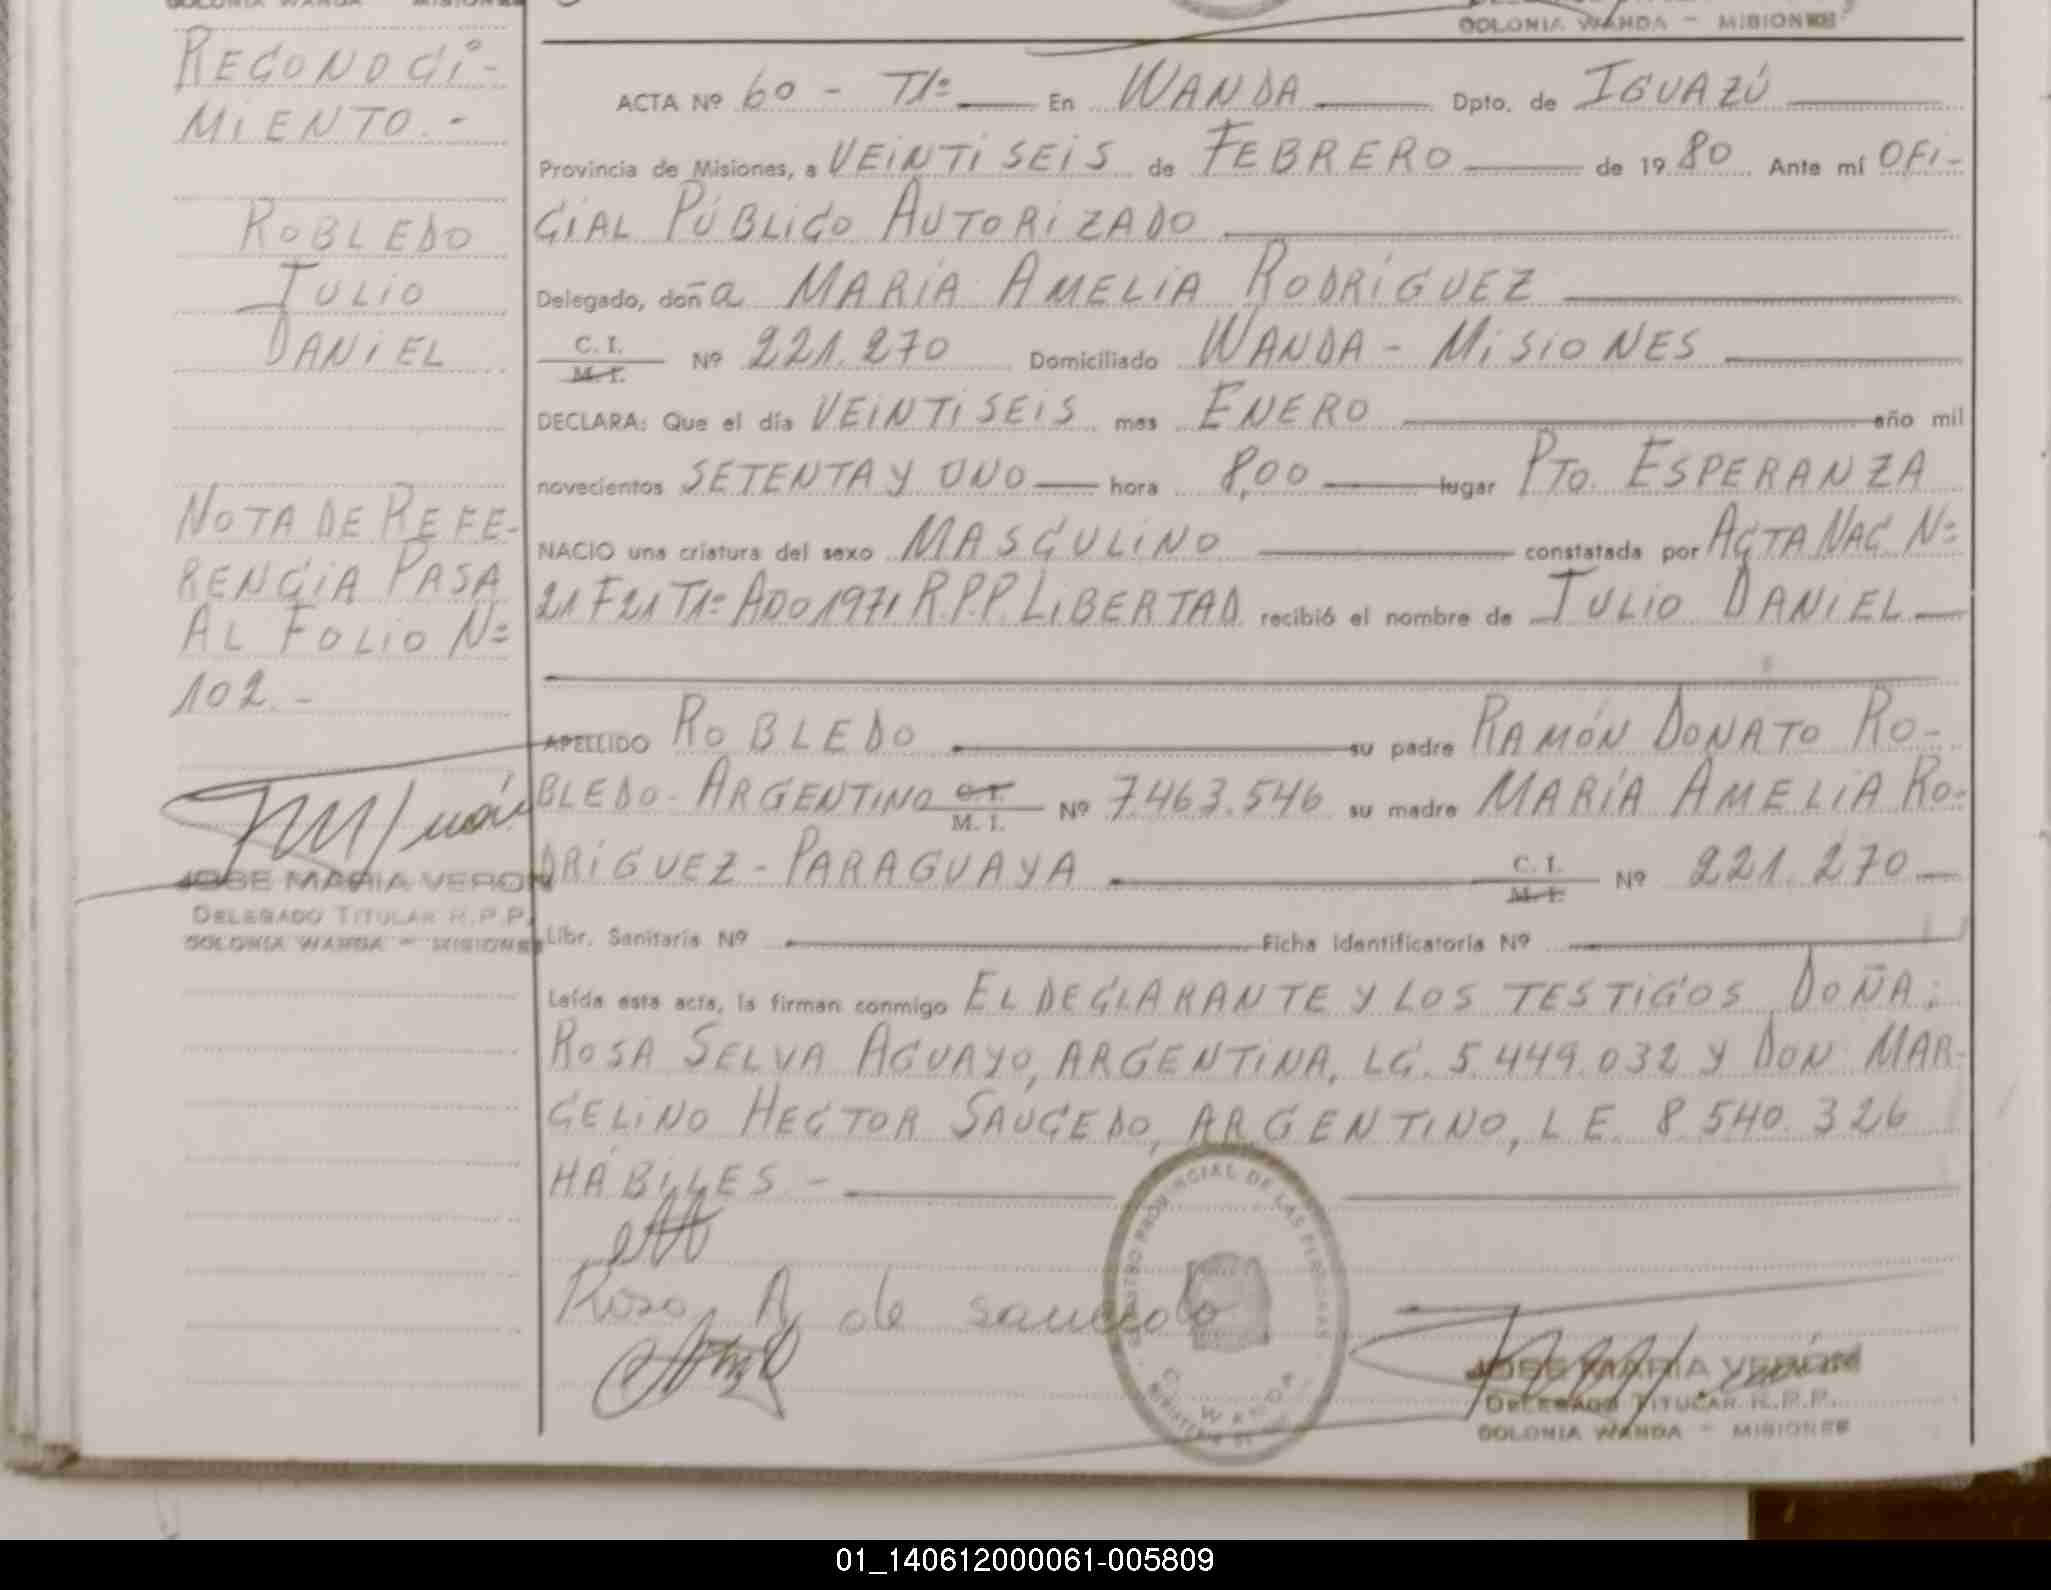 COLONIA WANDA - MISIONES
COLONIA WANDA - MISIONES
RECONOCI-
MIENTO.-
ROBLEDO
JULIO
DANIEL
NOTA DE REFE-
RENCIA PASA
AL FOLIO Nº
102.-
JOSE MARIA VERON
DELEGADO TITULAR R.P.P.
COLONIA WANDA - MISIONES
ACTA Nº 60 - T1º En WANDA Dpto. de IGUAZÚ
Provincia de Misiones, a VEINTISEIS de FEBRERO de 1980 Ante mí OFI-
CIAL PÚBLICO AUTORIZADO
Delegado, doña MARÍA AMELIA RODRÍGUEZ
C. I.
M. I. Nº 221.270 Domiciliado WANDA - MISIONES
DECLARA: Que el día VEINTISEIS mes ENERO año mil
novecientos SETENTA Y UNO hora 8,00 lugar PTO. ESPERANZA
NACIO una criatura del sexo MASCULINO constatada por ACTA NAC Nº
21 F21 T1º AÑO 1971 R.P.P. LIBERTAD recibió el nombre de JULIO DANIEL
APELLIDO ROBLEDO su padre RAMÓN DONATO RO-
BLEDO - ARGENTINO C. I. M. I. Nº 7.463.546 su madre MARÍA AMELIA RO-
DRÍGUEZ - PARAGUAYA C. I. M. I. Nº 221.270
Libr. Sanitaria Nº Ficha Identificatoria Nº
Leída esta acta, la firman conmigo EL DECLARANTE Y LOS TESTIGOS DOÑA:
ROSA SELVA AGUAYO, ARGENTINA, LC. 5.449.032 Y DON MAR-
CELINO HECTOR SAUCEDO, ARGENTINO, L E. 8.540.326
HÁBILES.-
Rosa A de saucedo
REGISTRO PROVINCIAL DE LAS PERSONAS
WANDA
JOSE MARIA VERON
DELEGADO TITULAR R.P.P.
COLONIA WANDA - MISIONES
01_140612000061-005809